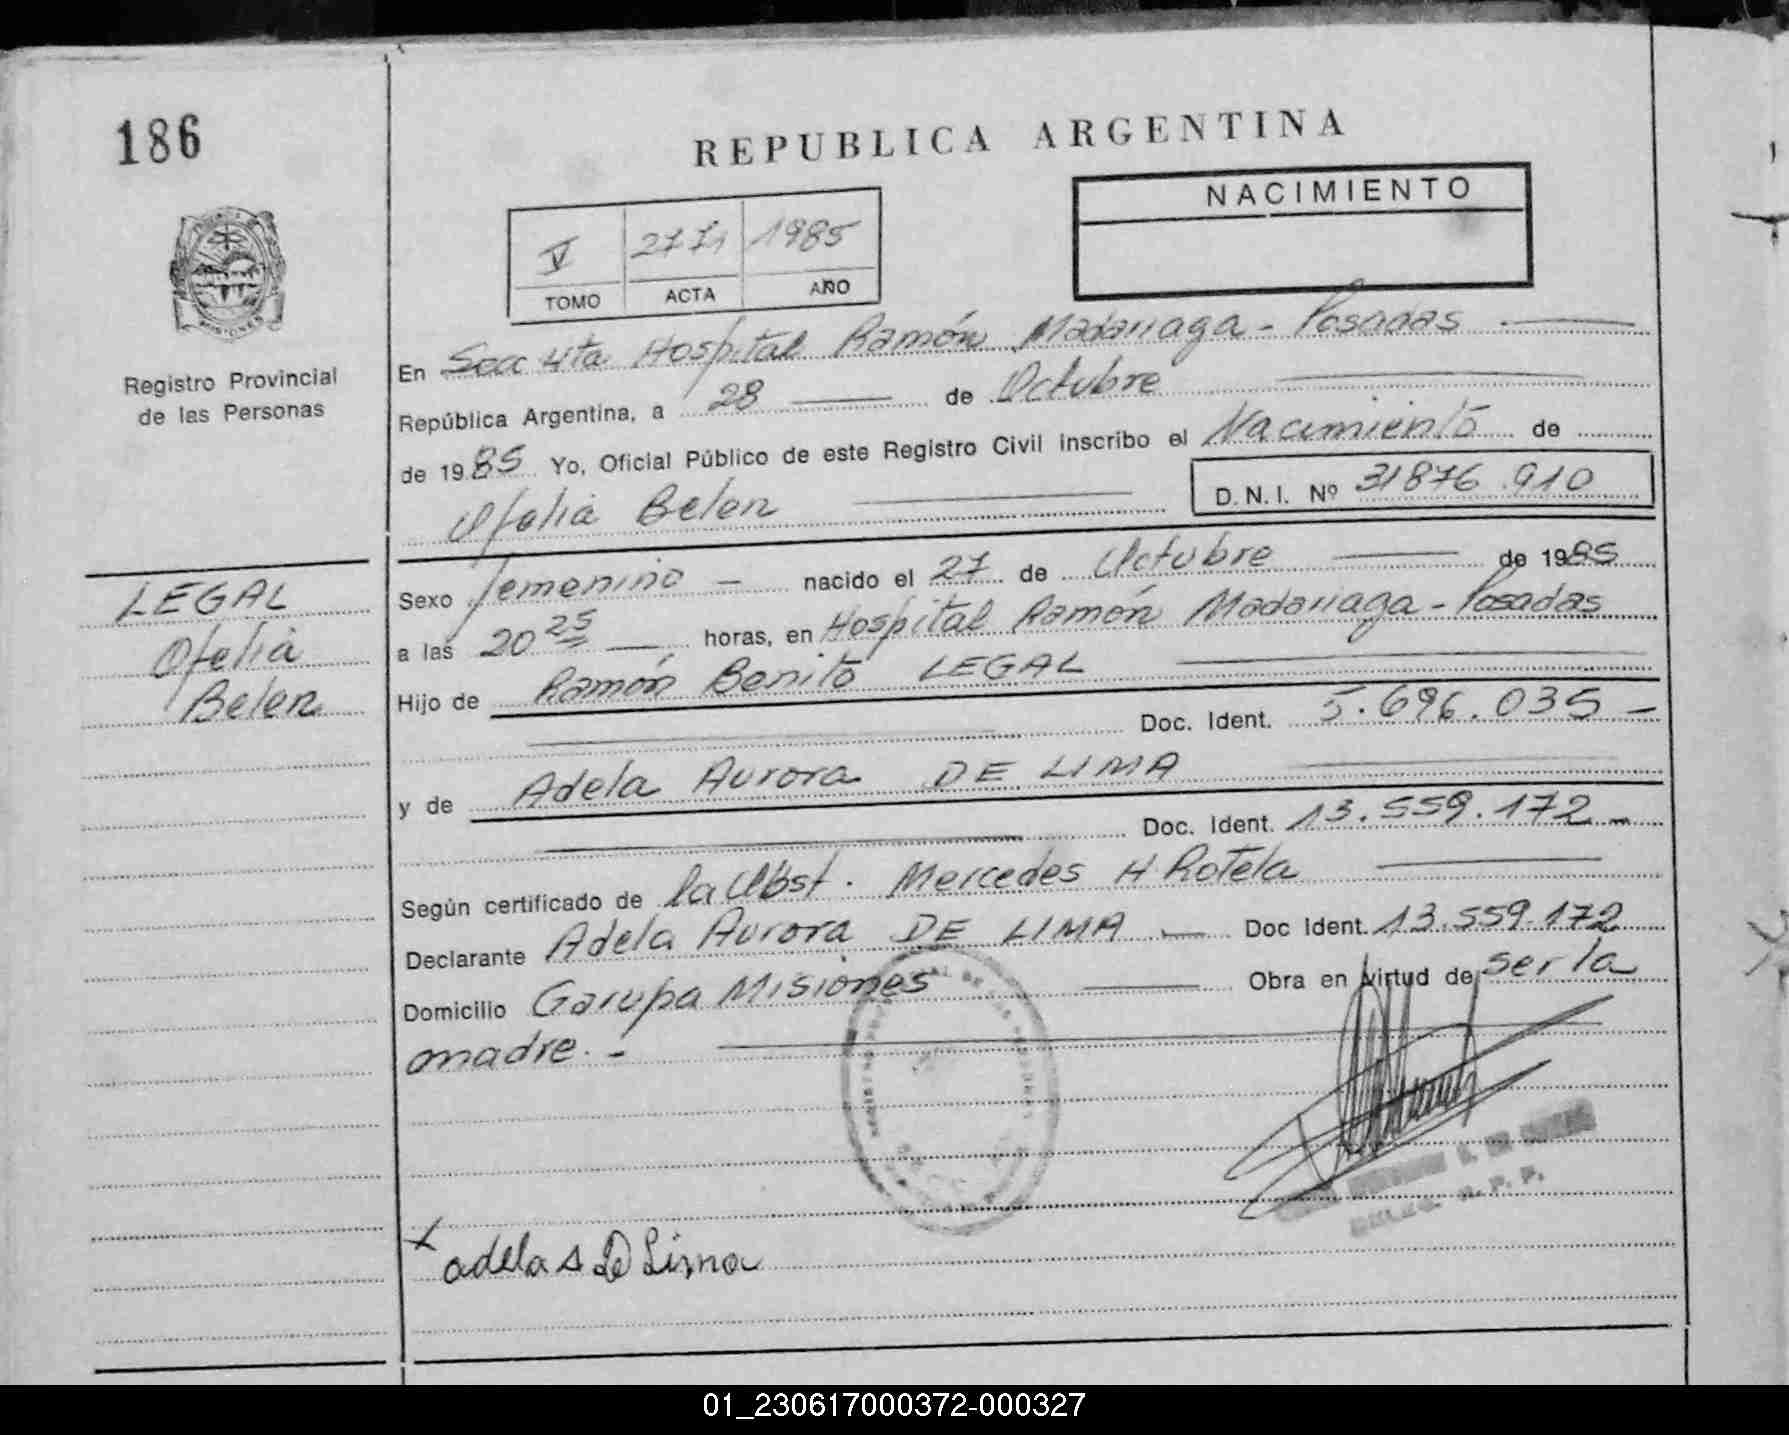 186
REPUBLICA ARGENTINA
NACIMIENTO
V 2771 1985
TOMO ACTA AÑO
MISIONES
Registro Provincial
de las Personas
En Secc 4ta Hospital Ramón Madariaga - Posadas
República Argentina, a 28 de Octubre
de 1985 Yo, Oficial Público de este Registro Civil inscribo el Nacimiento de
Ofelia Belen
D.N.I. Nº 31876.910
LEGAL
Ofelia
Belen
Sexo femenino - nacido el 27 de Octubre de 1985
a las 20 25 horas, en Hospital Ramón Madariaga - Posadas
Hijo de Ramón Benito LEGAL
Doc. Ident. 5.696.035 -
y de Adela Aurora DE LIMA
Doc. Ident. 13.559.172 -
Según certificado de la Obst. Mercedes H Rotela
Declarante Adela Aurora DE LIMA - Doc Ident. 13.559.172
Domicilio Garupa Misiones Obra en virtud de ser la
madre. -
R. P. P.
x adela A De Lima
01_230617000372-000327